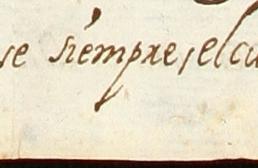 se siempre, el cu